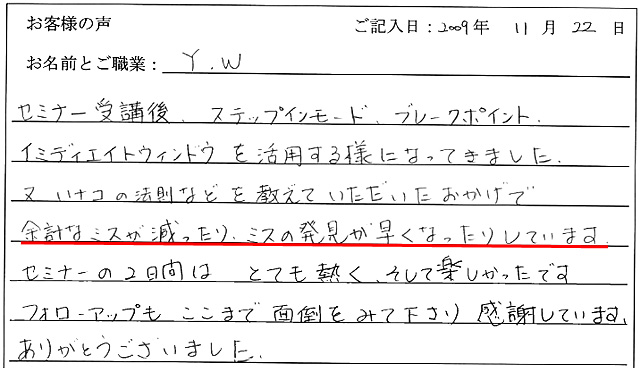 お客様の声 ご記入日：2009年 11月 22日
お名前とご職業： Y.W
セミナー受講後、ステップインモード、ブレークポイント、
イミディエイトウィンドウを活用する様になってきました。
又ハナコの法則などを教えていただいたおかげで
余計なミスが減ったり、ミスの発見が早くなったりしています。
セミナーの2日間は とても熱く、そして楽しかったです
フォローアップも ここまで面倒をみて下さり 感謝しています。
ありがとうございました。